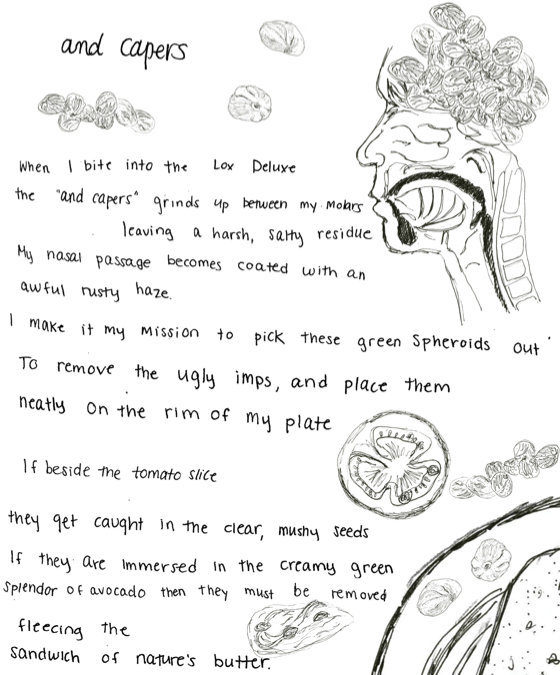 and capers
When I bite into the Lox Deluxe
the "and capers" grinds up between my Molars
leaving a harsh, salty residue
My nasal passage becomes coated with an
awful rusty haze.
I make it my Mission to pick these green Spheroids out
To remove the ugly imps, and place them
neatly on the rim of my plate
If beside the tomato slice
they get caught in the clear, mushy seeds
If they are immersed in the creamy green
splendor of avocado then they must be removed
fleecing the
sandwich of nature's butter.